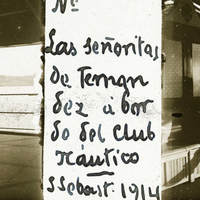 Nº
Las señoritas
de Fernan
dez a bor
do del Club
Náutico
SSebast. 1914